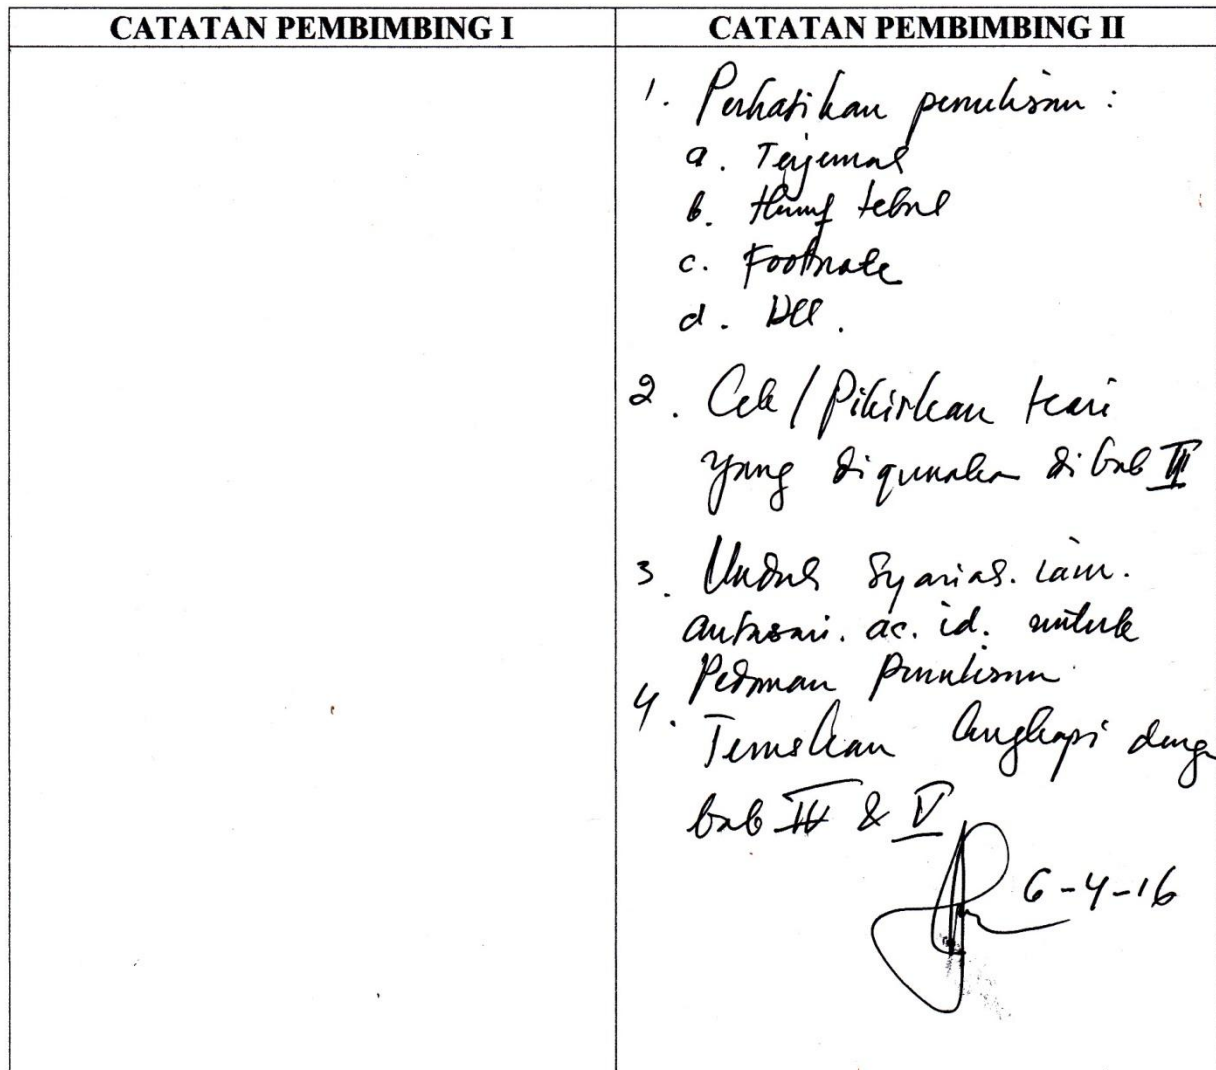 CATATAN PEMBIMBING I
CATATAN PEMBIMBING II
1. Perhatikan penulisan :
a. Terjemah
b. Huruf tebal
c. Footnote
d. Dll.
2. Cek / Pikirkan teori
yang digunakan di bab
3. Unduh syariah. iain.
antasari. ac. id. untuk
Pedoman Penulisan
4. Teruskan lengkapi dengan
bab IV & V
6-4-16